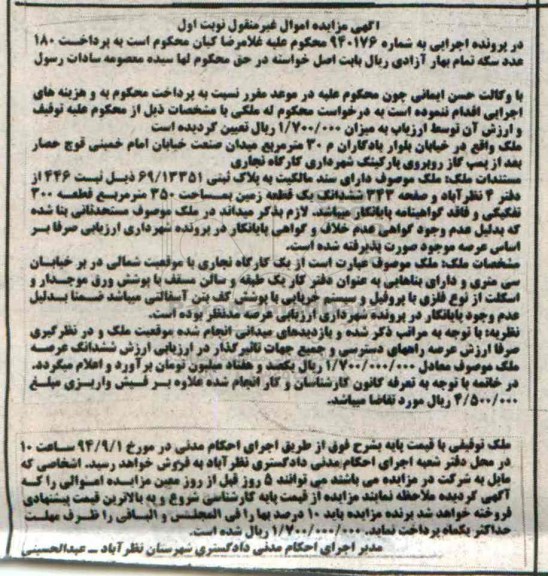 آگهی مزایده اموال غیرمنقول نوبت اول
در پرونده اجرایی به شماره ۹۴۰۱۷۶ محکوم علیه غلامرضا کیان محکوم است به پرداخت ۱۸۰
عدد سکه تمام بهار آزادی ریال بابت اصل خواسته در حق محکوم لها سیده معصومه سادات رسول
با وکالت حسن ایمانی چون محکوم علیه در موعد مقرر نسبت به پرداخت محکوم به و هزینه های
اجرایی اقدام ننموده است به درخواست محکوم له ملکی با مشخصات ذیل از محکوم علیه توقیف
و ارزش آن توسط ارزیاب به میزان ۱/۷۰۰/۰۰۰ ریال تعیین گردیده است
ملک واقع در خیابان بلوار یادگاران م ۳۰ مترمربع میدان صنعت خیابان امام خمینی قوچ حصار
بعد از پمپ گاز روبروی پارکینگ شهرداری کارگاه نجاری
مستندات ملک: ملک موصوف دارای سند مالکیت به پلاک ثبتی ۶۹/۱۳۳۵۱ ذیل ثبت ۴۴۶ از
دفتر ۴ نظرآباد و صفحه ۳۴۳ ششدانگ یک قطعه زمین بمساحت ۳۵۰ مترمربع قطعه ۳۰۰
تفکیکی و فاقد گواهینامه پایانکار میباشد. لازم بذکر میداند در ملک موصوف مستحدثاتی بنا شده
که بدلیل عدم وجود گواهی عدم خلاف و گواهی پایانکار در پرونده شهرداری ارزیابی صرفا بر
اساس عرصه موجود صورت پذیرفته شده است.
مشخصات ملک: ملک موصوف عبارت است از یک کارگاه نجاری با موقعیت شمالی در بر خیابان
سی متری و دارای بناهایی به عنوان دفتر کار یک طبقه و سالن مسقف با پوشش ورق موجدار و
اسکلت از نوع فلزی با پروفیل و سیستم خرپایی با پوشش کف بتن آسفالتی میباشد ضمنا بدلیل
عدم وجود پایانکار در پرونده شهرداری ارزیابی عرصه مدنظر بوده است.
نظریه: با توجه به مراتب ذکر شده و بازدیدهای میدانی انجام شده موقعیت ملک و در نظرگیری
صرفا ارزش عرصه راههای دسترسی و جمیع جهات تاثیرگذار در ارزیابی ارزش ششدانگ عرصه
ملک موصوف معادل ۱/۷۰۰/۰۰۰/۰۰۰ ریال یکصد و هفتاد میلیون تومان برآورد و اعلام میگردد.
در خاتمه با توجه به تعرفه کانون کارشناسان و کار انجام شده علاوه بر فیش واریزی مبلغ
۴/۵۰۰/۰۰۰ ریال مورد تقاضا میباشد.
ملک توقیفی با قیمت پایه بشرح فوق از طریق اجرای احکام مدنی در مورخ ۹۴/۹/۱ ساعت ۱۰
در محل دفتر شعبه اجرای احکام مدنی دادگستری نظرآباد به فروش خواهد رسید. اشخاصی که
مایل به شرکت در مزایده می باشند می توانند ۵ روز قبل از روز معین مزایده اموالی را که
آگهی گردیده ملاحظه نمایند مزایده از قیمت پایه کارشناسی شروع و به بالاترین قیمت پیشنهادی
فروخته خواهد شد برنده مزایده باید ۱۰ درصد بها را فی المجلس و الباقی را ظرف مهلت
حداکثر یکماه پرداخت نماید. ۱/۷۰۰/۰۰۰/۰۰۰ ریال شده است.
مدیر اجرای احکام مدنی دادگستری شهرستان نظرآباد ــ عبدالحسینی